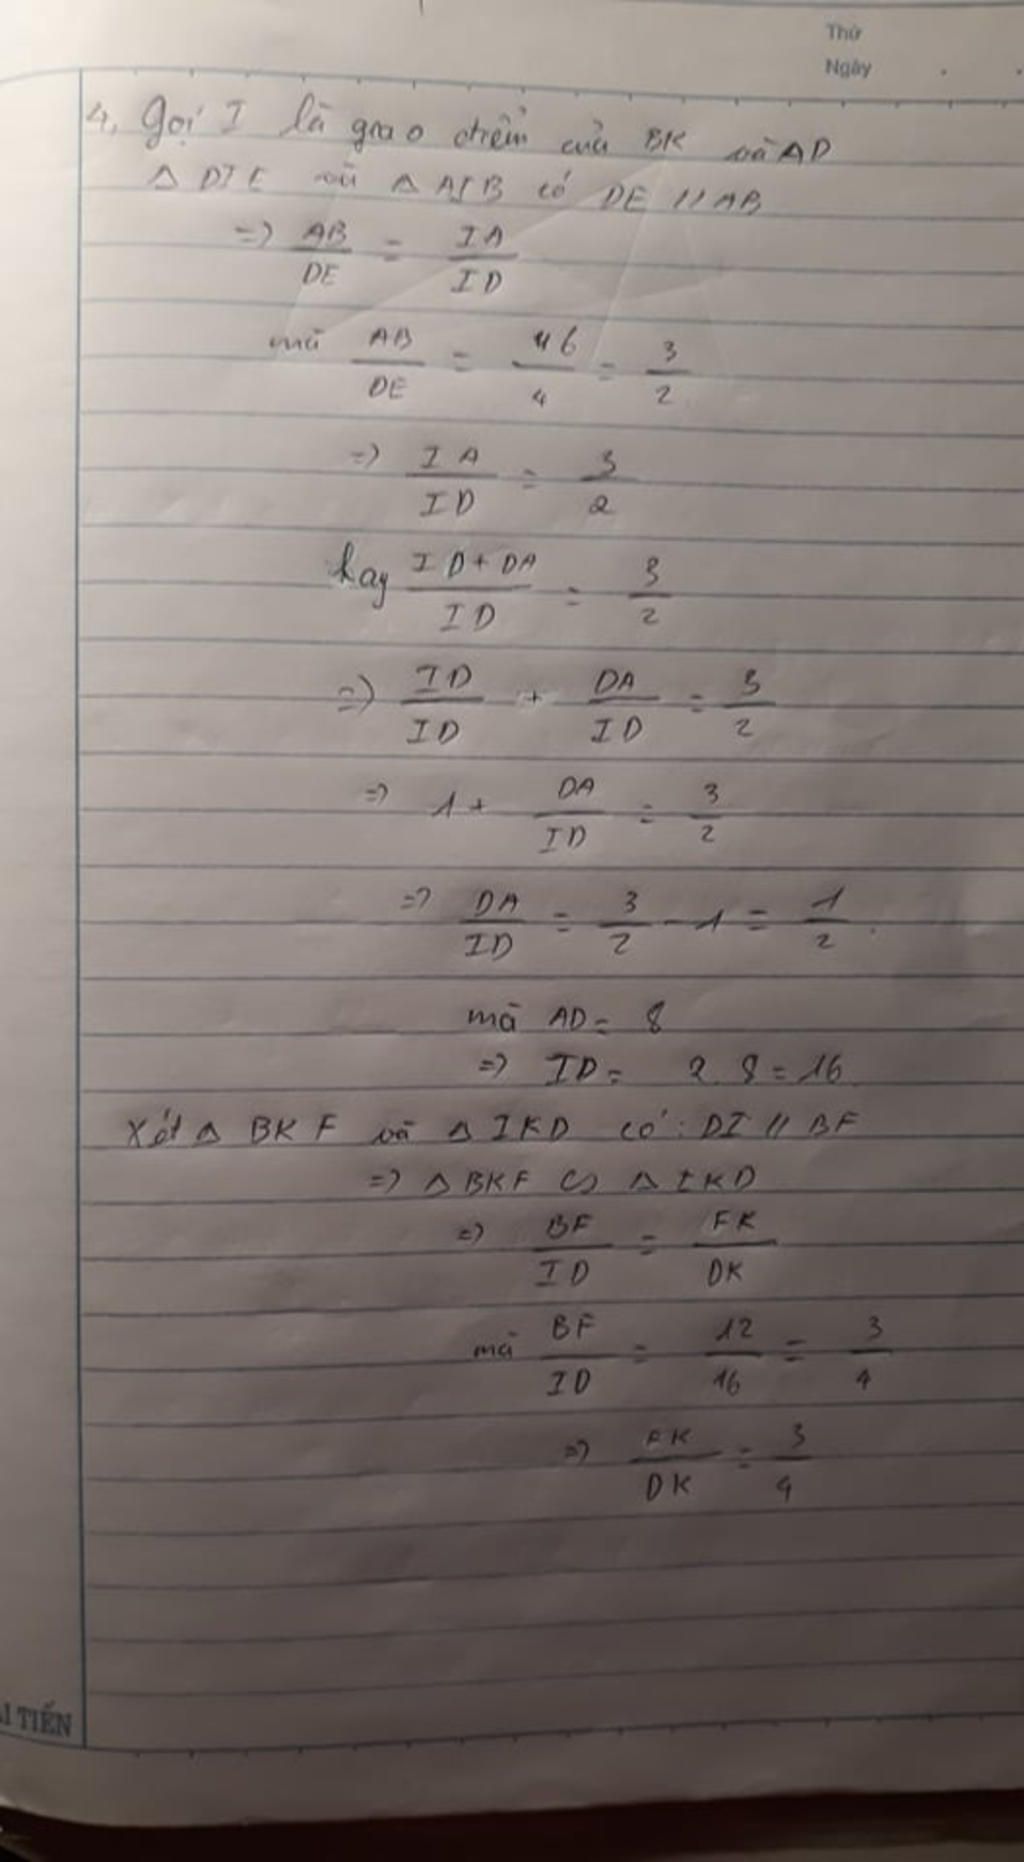 Thứ
Ngày
4, Gọi I là giao điểm của BK và AD
Δ DIE và Δ AIB có DE // AB
=> AB/DE = IA/ID
mà AB/DE = 6/4 = 3/2
=> IA/ID = 3/2
hay ID+DA/ID = 3/2
=> ID/ID + DA/ID = 3/2
=> 1+ DA/ID = 3/2
=> DA/ID = 3/2 - 1 = 1/2.
mà AD = 8
=> ID = 2.8 = 16
Xét Δ BKF và Δ IKD có: DI // BF
=> Δ BKF ∽ Δ IKD
=> BF/ID = FK/DK
mà BF/ID = 12/16 = 3/4
=> FK/DK = 3/4
TIẾN